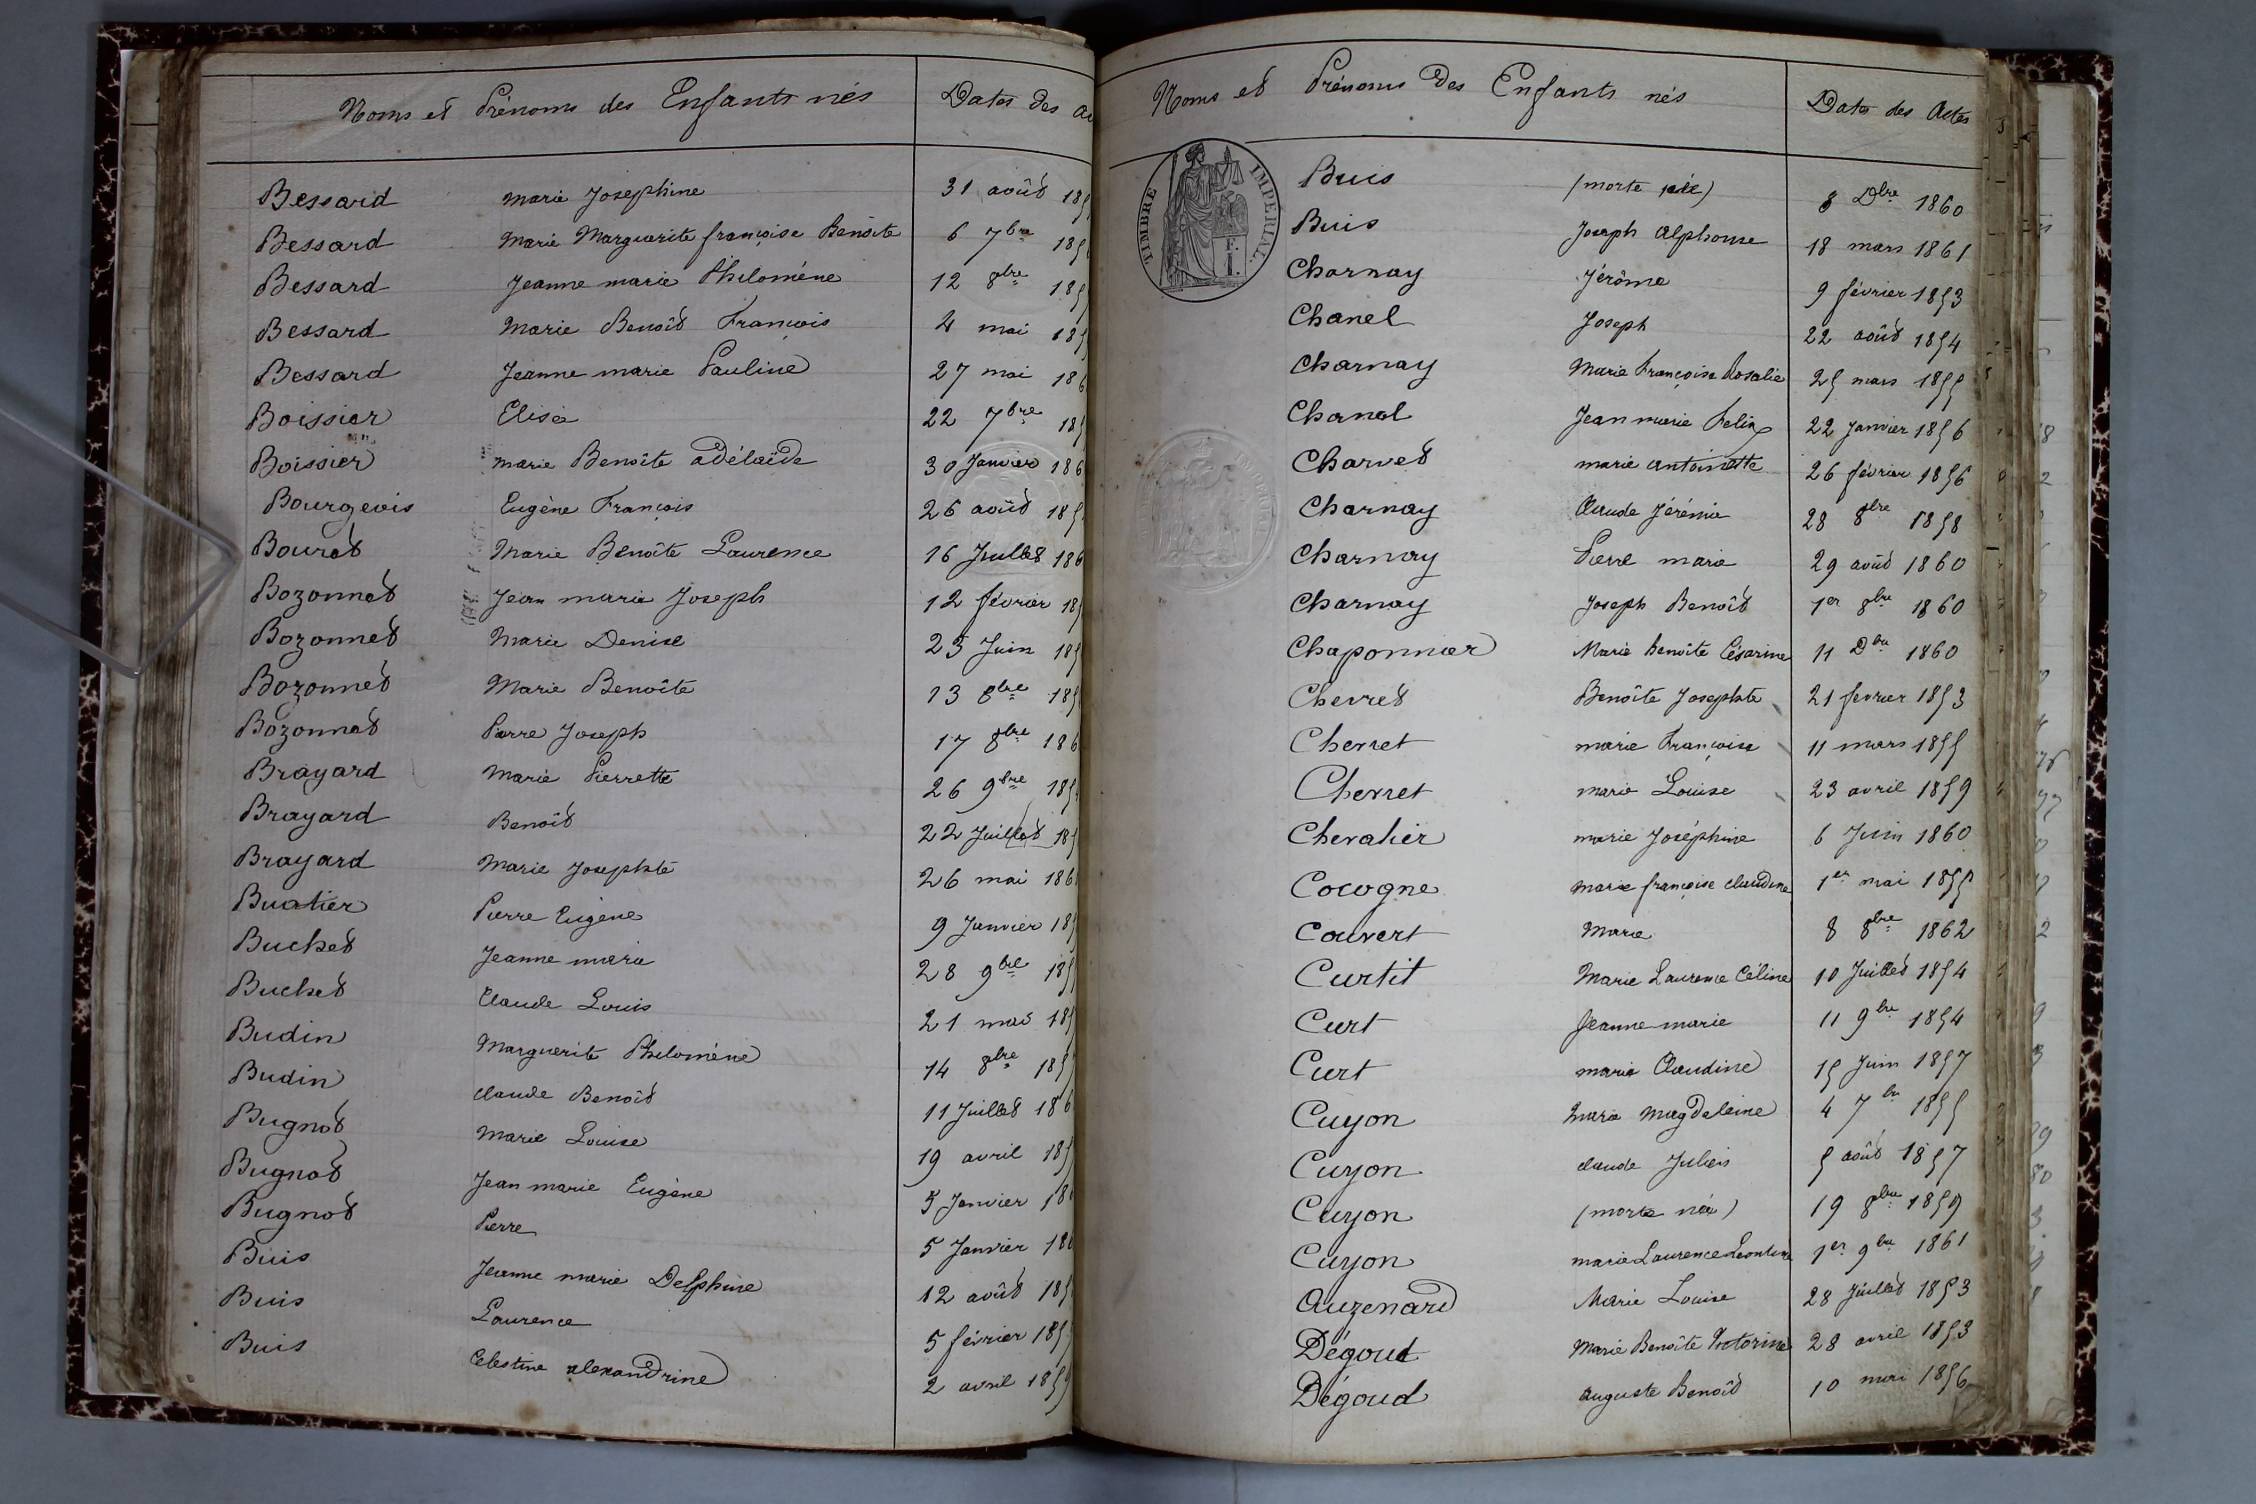 Noms et Prénoms des Enfants nés Dates des
Bessard Marie Josephine 31 août 185
Bessard Marie Marguerite françoise Benoite 6 7bre 185
Bessard Jeanne marie Philomène 12 8bre 185
Bessard Marie Benoît François 4 mai 185
Bessard Jeanne marie Pauline 27 mai 186
Boissier Elisa 22 7bre 185
Boissier Marie Benoîte adélaïde 30 Janvier 186
Bourgeois Eugène François 26 août 185
Bouret Marie Benoîte Laurence 16 Juillet 186
Bozonnet Jean marie Joseph 12 février 185
Bozonnet Marie Denise 23 Juin 185
Bozonnet Marie Benoîte 13 8bre 185
Bozonnet Pierre Joseph 17 8bre 186
Brayard Marie Pierrette 26 9bre 185
Brayard Benoît 22 Juillet 185
Brayard Marie Josephte 26 mai 186
Buatier Pierre Eugène 9 Janvier 185
Buchet Jeanne marie 28 9bre 185
Buchet Claude Louis 21 mai 185
Budin Marguerite Philomène 14 8bre 185
Budin Claude Benoît 11 Juillet 186
Bugnot Marie Louise 19 avril 185
Bugnot Jean marie Eugène 5 Janvier 18
Bugnot Pierre 5 Janvier 18
Buis Jeanne marie Delphine 12 août 185
Buis Laurence 5 février 185
Buis Celestine alexandrine 2 avril 1859
Noms et Prénoms des Enfants nés Dates des Actes
TIMBRE IMPERIAL.
E. F. I.
Buis (morte née) 8 Dbre 1860
Buis Joseph Alphonse 18 mars 1861
Charnay Jérôme 9 février 1853
Chanel Joseph 22 août 1854
Charnay Marie Françoise Rosalie 25 mars 1855
Chanel Jean marie Felix 22 Janvier 1856
Charvet marie antoinette 26 février 1856
Charnay Claude Jérémie 28 8bre 1858
Charnay Pierre marie 29 août 1860
Charnay Joseph Benoît 1er 8bre 1860
Chaponnier Marie Benoîte Césarine 11 Dbre 1860
Chevret Benoîte Josephte 21 fevrier 1853
Chevret marie Françoise 11 mars 1855
Chevret marie Louise 23 avril 1859
Chevalier marie Joséphine 6 Juin 1860
Cocogne Marie françoise claudine 1er mai 1855
Couvert Marie 8 8bre 1862
Curtit Marie Laurence Céline 10 Juillet 1854
Curt Jeanne marie 11 9bre 1854
Curt marie Claudine 15 Juin 1857
Cuyon Marie Magdeleine 4 7bre 1855
Cuyon claude Julien 5 août 1857
Cuyon (morte née) 19 8bre 1859
Cuyon marie Laurence Leontine 1er 9bre 1861
Cuzenard Marie Louise 28 Juillet 1853
Dégout Marie Benoîte Victorine 28 avril 1853
Dégoud Auguste Benoît 10 mai 1856